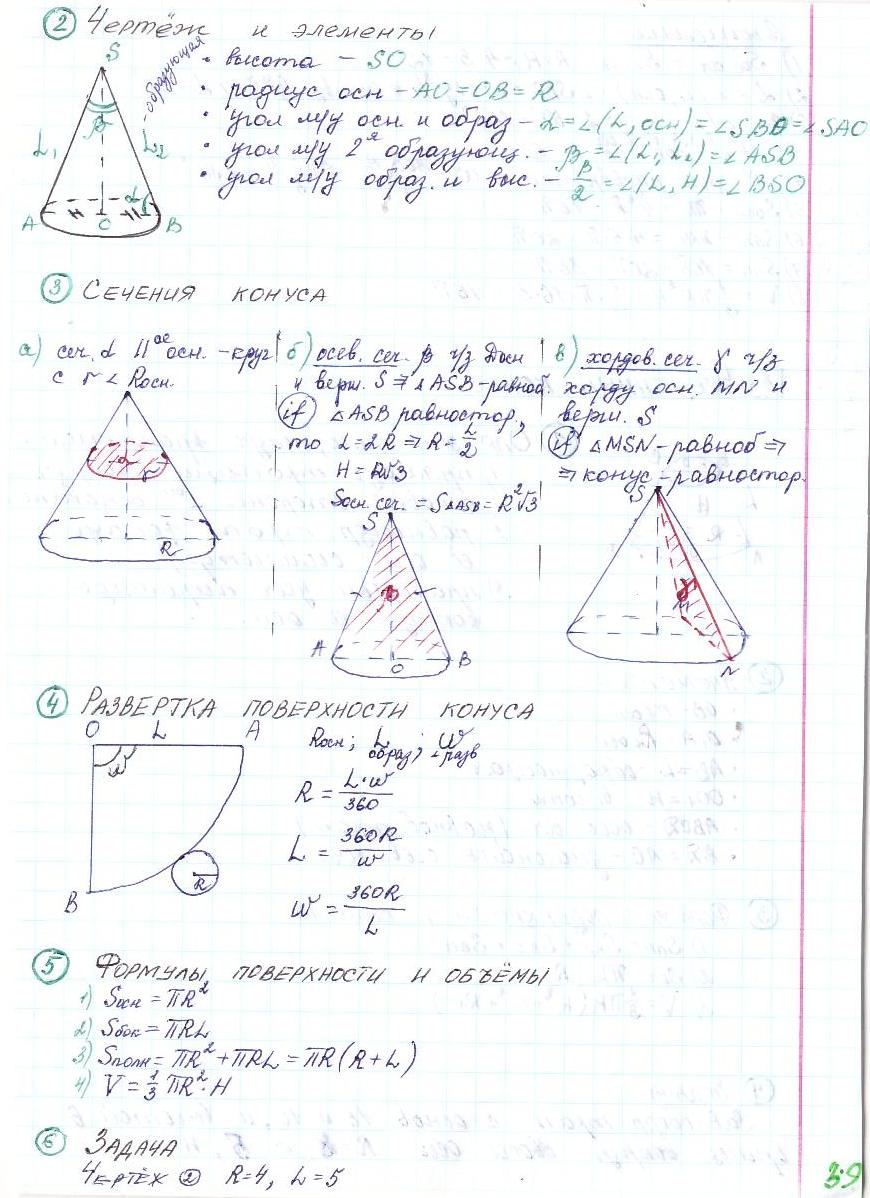 ② Чертёж и элементы
S
образующая
• высота – SO
• радиус осн – AO = OB = R
• угол м/у осн. и образ – α = ∠(L, осн) = ∠SBO = ∠SAO
• угол м/у 2ᵃ образующ. – β = ∠(L₁ L₂) = ∠ASB
• угол м/у образ. и выс. – β/2 = ∠(L, H) = ∠BSO
β
L₁ L₂
α
A O B
③ Сечения конуса
а) сеч. α || осн. – круг
с r < Rосн.
r
R
б) осев. сеч. β ч/з Dосн
и верш. S ⇒ △ASB – равноб
if △ASB равностор.,
то L = 2R ⇒ R = L/2
H = R√3
Sосн. сеч. = S△ASB = R²√3
S
β
A O B
в) хордов. сеч. γ ч/з
хорду осн. MN и
верш. S
if △MSN – равноб ⇒
⇒ конус – равностор.
S
γ
M
N
④ Развертка поверхности конуса
O L A
w
B
R
Rосн; L образ; w ∠разв
R = L·w/360
L = 360R/w
W = 360R/L
⑤ Формулы поверхности и объёмы
1) Sосн = πR²
2) Sбок = πRL
3) Sполн = πR² + πRL = πR(R + L)
4) V = 1/3 πR²·H
⑥ Задача
Чертёх ② R=4, L=5
39